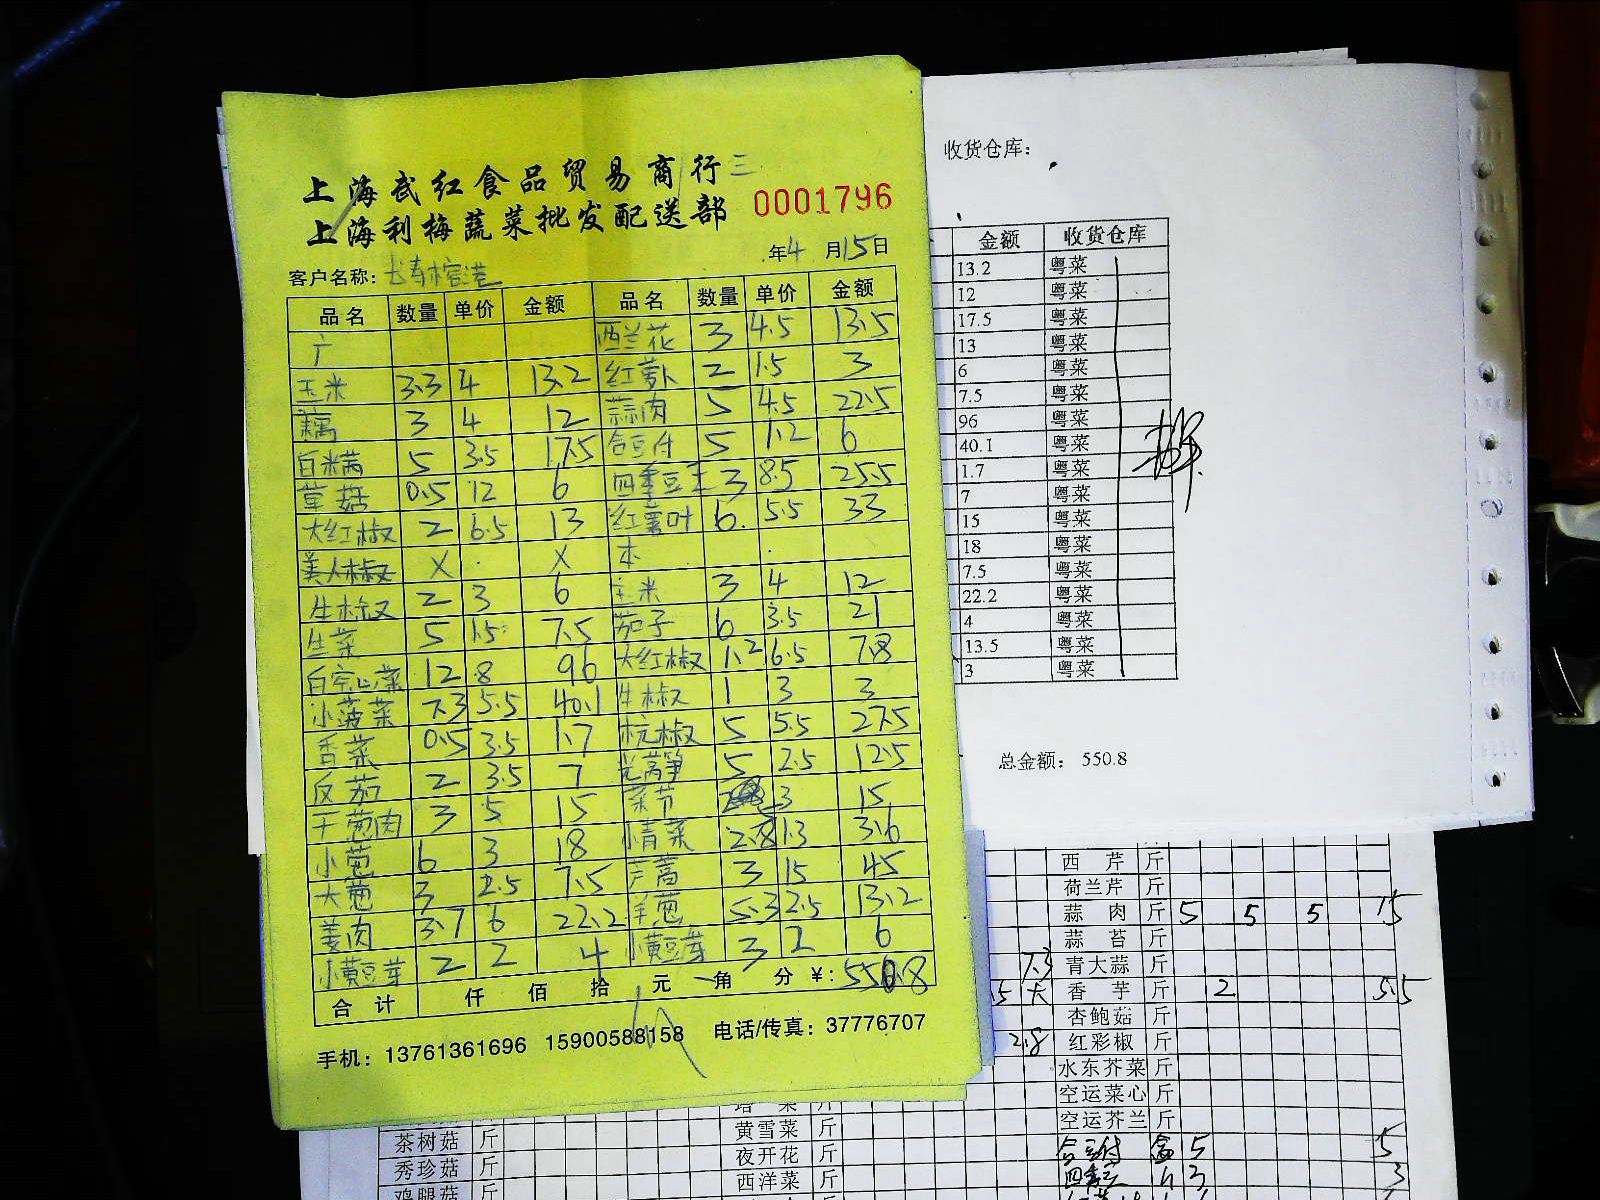 上海武红食品贸易商行 三
上海利梅蔬菜批发配送部 0001796
年4月15日
客户名称:
品名 数量 单价 金额 品名 数量 单价 金额
广 西兰花 3 4.5 13.5
玉米 3.3 4 13.2 红萝卜 2 1.5 3
藕 3 4 12 蒜肉 5 4.5 22.5
5 3.5 17.5 5 1.2 6
草菇 0.5 12 6 四季豆 3 8.5 25.5
大红椒 2 6.5 13 红薯叶 6 5.5 33
美人椒 X X 本
牛椒 2 3 6 玉米 3 4 12
生菜 5 1.5 7.5 茄子 6 3.5 21
白空心菜 12 8 96 大红椒 1.2 6.5 7.8
小菠菜 7.3 5.5 40.1 牛椒 1 3 3
香菜 0.5 3.5 1.7 杭椒 5 5.5 27.5
反茄 2 3.5 7 光莴笋 5 2.5 12.5
干葱肉 3 5 15 3 15
小葱 6 3 18 小青菜 2.8 1.3 3.6
大葱 3 2.5 7.5 芦蒿 3 15 45
姜肉 3.7 6 22.2 洋葱 5.3 2.5 13.2
小黄豆芽 2 2 4 小黄豆芽 3 2 6
合计 仟 佰 拾 元 角 分 ¥: 550.8
手机: 13761361696 15900588158 电话/传真: 37776707
收货仓库:
金额 收货仓库
13.2 粤菜
12 粤菜
17.5 粤菜
13 粤菜
6 粤菜
7.5 粤菜
96 粤菜
40.1 粤菜
1.7 粤菜
7 粤菜
15 粤菜
18 粤菜
7.5 粤菜
22.2 粤菜
4 粤菜
13.5 粤菜
3 粤菜
总金额: 550.8
西芹 斤
荷兰芹 斤
蒜肉 斤 5 5 5 15
蒜苔 斤
7.3 青大蒜 斤
大 香芋 斤 2 5.5
杏鲍菇 斤
2.8 红彩椒 斤
水东芥菜 斤
空运菜心 斤
空运芥兰 斤
茶树菇 斤 黄雪菜 斤 5 5
秀珍菇 斤 夜开花 斤 四季豆 3 3
鸡腿菇 斤 西洋菜 斤